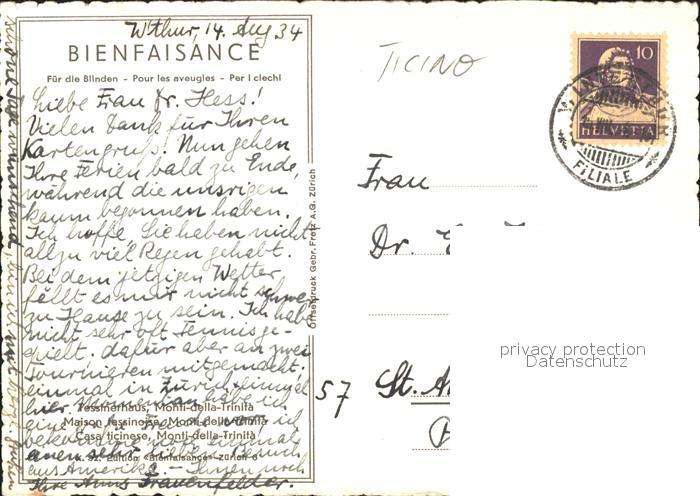 W'thur, 14. Aug 34
BIENFAISANCE
Für die Blinden - Pour les aveugles - Per i ciechi
Liebe Frau Dr. Hess!
Vielen Dank für Ihren
Kartengruß! Nun gehen
Ihre Ferien bald zu Ende,
während die unsrigen
kaum begonnen haben.
Ich hoffe Sie haben nicht
allzu viel Regen gehabt.
Bei dem jetzigen Wetter
fällt es mir nicht schwer
zu Hause zu sein. Ich habe
nicht sehr oft Tennis ge-
spielt. dafür aber an zwei
Tournieren mitgemacht.
einmal in Zürich einmal
hier. habe ich
Tessinerhaus, Monti-della-Trinità
eine ich
Maison tessinoise, Monti-della-Trinità
einmal
Casa ticinese, Monti-della-Trinità
einen sehr lieben Besuch
Edition «Bienfaisance» Zürich 6
aus Amerika. – Ihnen noch
Ihre Frauenfelder.
Offsetdruck Gebr. Fretz A.G. Zürich
TICINO
10
HELVETIA
FILIALE
Frau
Dr.
57
St.
privacy protection
Datenschutz